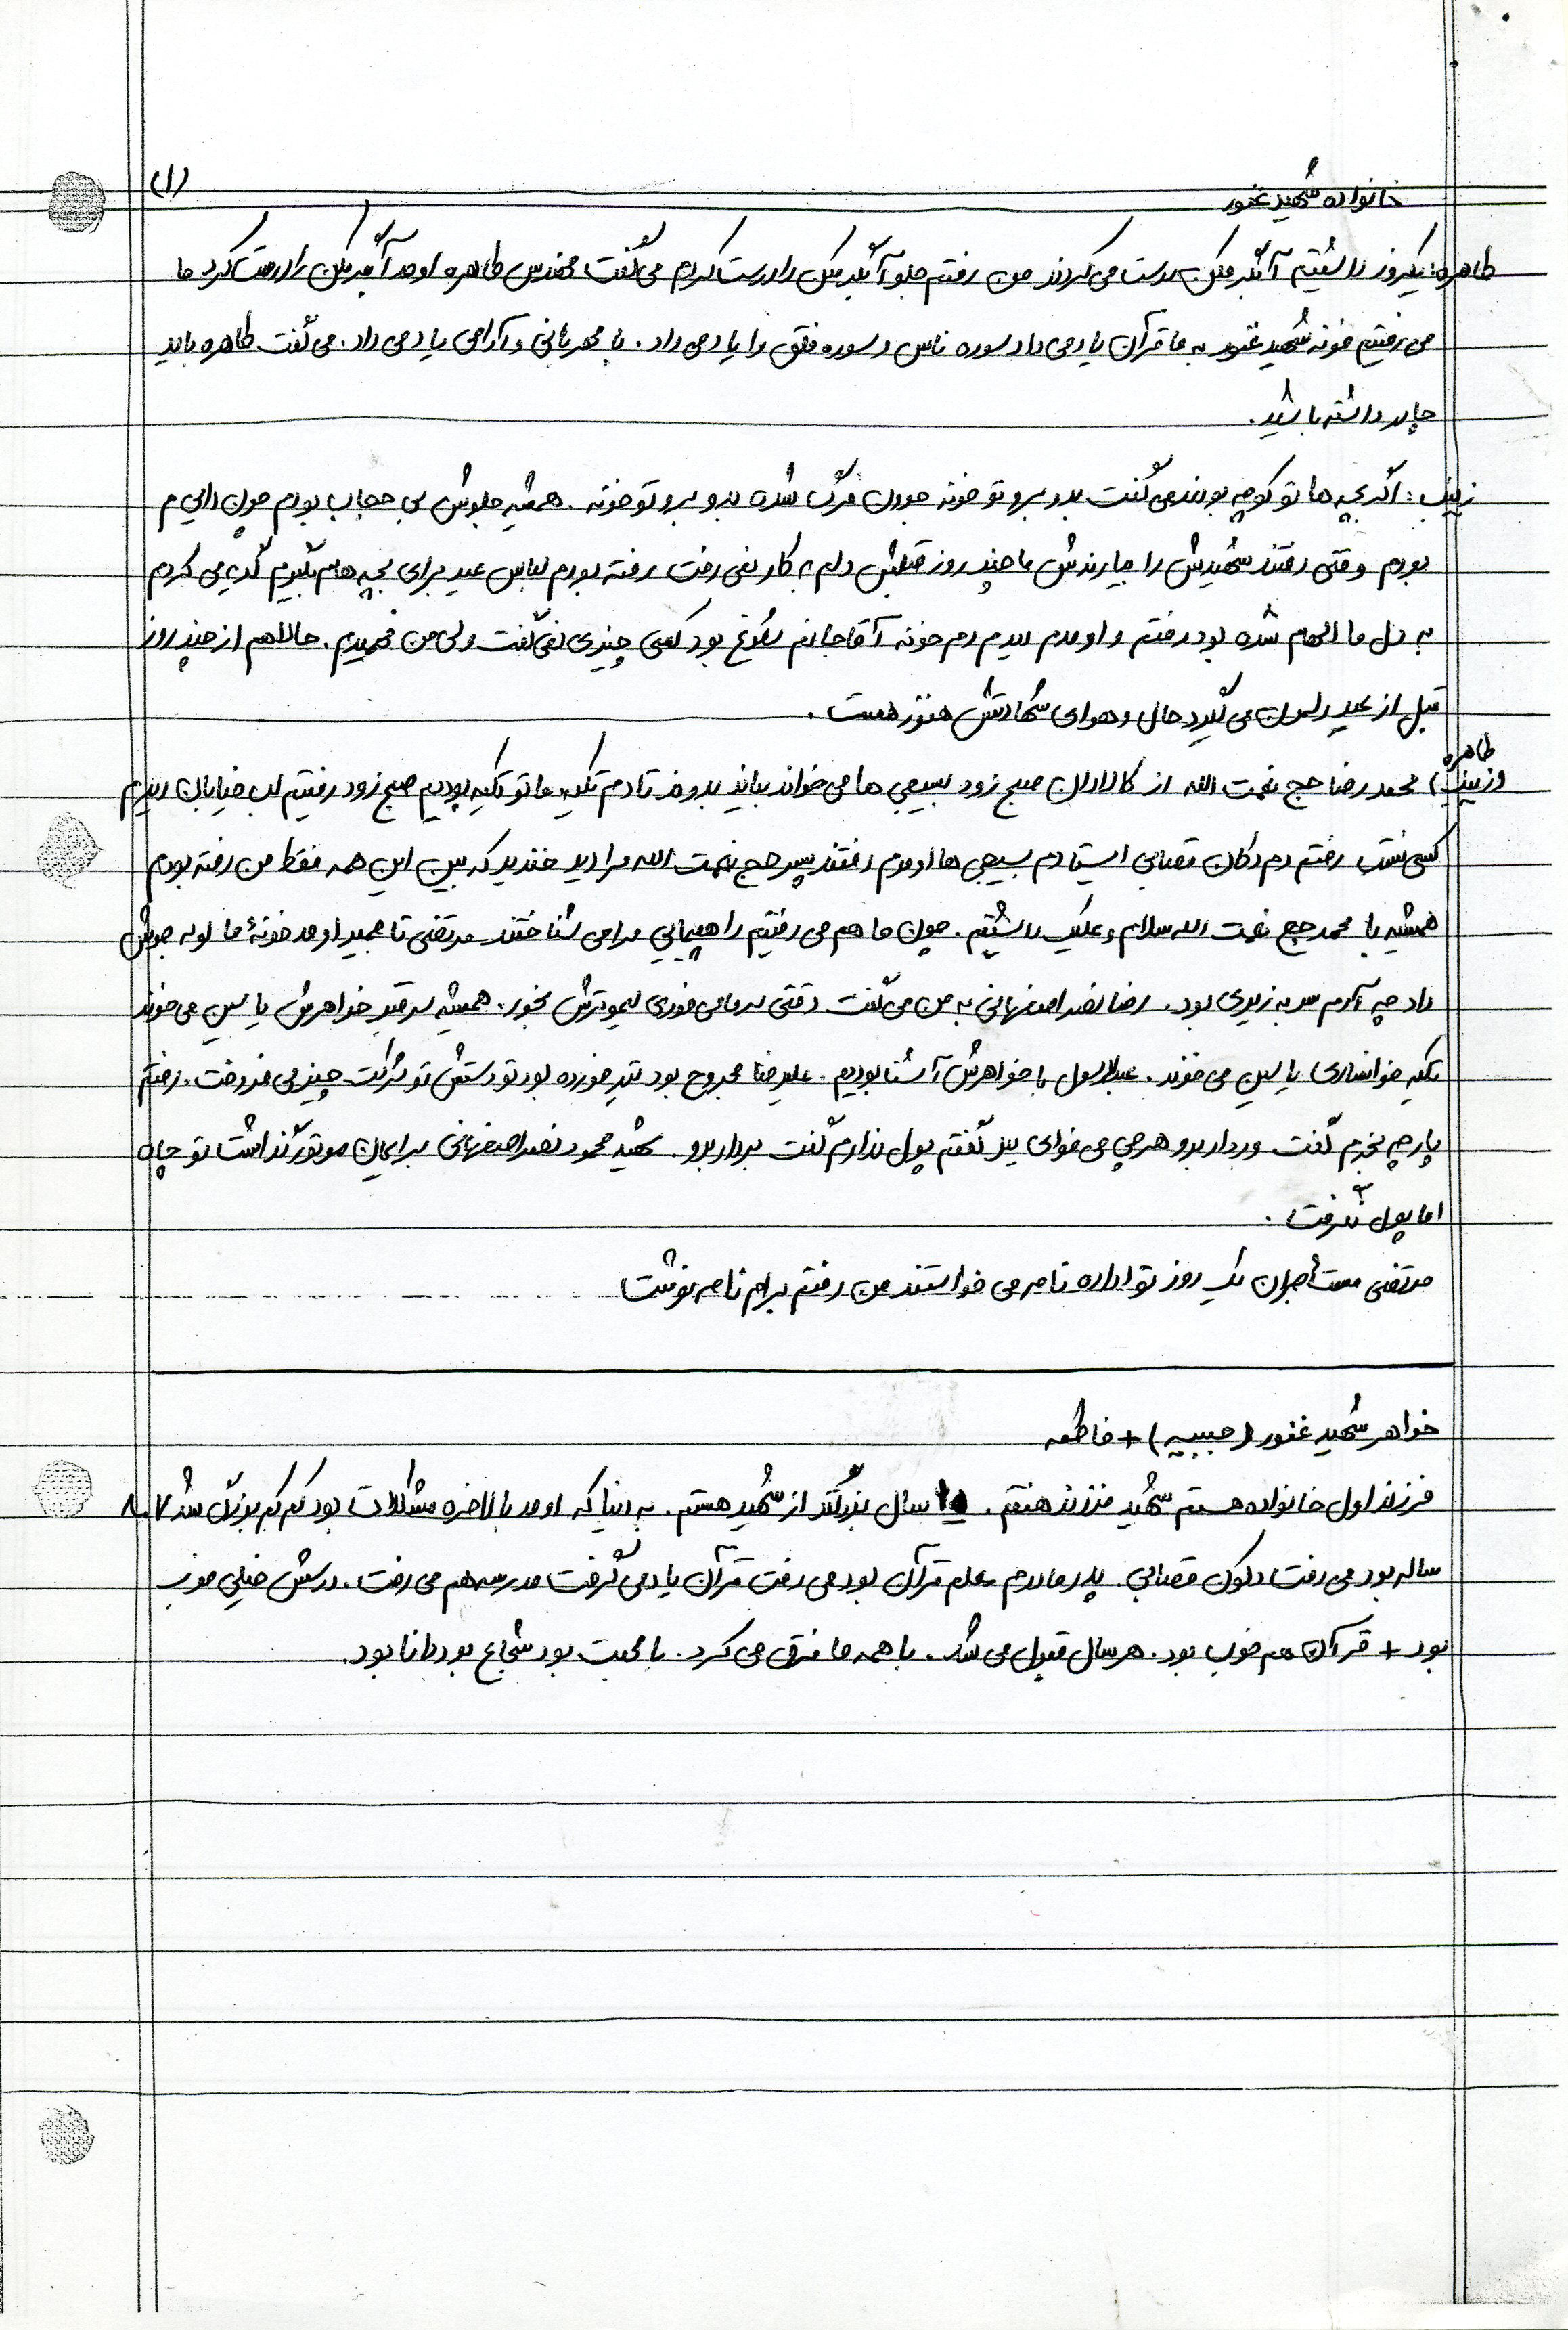 (۱)
خانواده شهید غفور
طاهره: یکروز داشتیم آبگرمکن درست می کردند من رفتم جلو آبگرمکن را درست کردم می گفت مهندس طاهره اومد آبگرمکن را درست کرد ما
می رفتیم خونه شهید غفور به ما قرآن یاد می داد سوره ناس و سوره فلق را یاد می داد. با مهربانی و آرامی یاد می داد. می گفت طاهره باید
چادر داشته باشید.
زینب: اگر بچه ها تو کوچه بودند می گفت بدو برو تو خونه جوون مرگ شده بدو برو تو خونه. همیشه جلوش بی حجاب بودم چون دایی م
بودم وقتی رفتند شهیدش را بیارندش ما چند روز قبلش دلم به کار نمی رفت رفته بودم لباس عید برای بچه هام بگیرم گریه می کردم
به دل ما الهام شده بود رفتم و اومدم دیدم دم خونه آقاجانم شلوغ بود کسی چیزی نمی گفت ولی من فهمیدم. حالا هم از چند روز
قبل از عید دلمون می گیرد حال و هوای شهادتش هنوز هست.
طاهره
و زینب) محمدرضا حج نعمت الله از کارادان صبح زود بسیجی ها می خواند بیاند بدوند تا دم تکیه ما تو تکیه بودیم صبح زود رفتیم لب خیابان دیدم
کسی نیست رفتم دم دکان قصابی ایستادم بسیجی ها اومدم رفتند پسر حج نعمت الله مرا دید خندید که بین این همه فقط من رفته بودم
همیشه با محمد حج نعمت الله سلام و علیک داشتیم. چون ما هم می رفتیم راهپیمایی مرا می شناختند مرتضی تامجید اومد خونهٔ ما لوله جوش
داد چه آدم سر به زیری بود. رضا نصر اصفهانی به من می گفت وقتی سرما می خوری لیموترش بخور. همیشه سر قبر خواهرش یاسین می خوند
تکیه خوانساری یاسین می خوند. عبدالرسول با خواهرش آشنا بودیم. علیرضا مجروح بود تیر خورده بود تو دستش تو شرکت چیز می فروخت. رفتم
پارچه بخرم گفت وردار برو هر چی می خوای ببر گفتم پول ندارم گفت بردار برو. شهید محمود نصر اصفهانی برامان موتور گذاشت تو چاه
اما پول نگرفت.
مرتضی مستأجران یک روز تو اداره نامه می خواستند من رفتم برام نامه نوشت
خواهر شهید غفور (حبیبه) + فاطمه
فرزند اول خانواده هستم شهید فرزند هفتم. ۱۵ سال بزرگتر از شهید هستم. به دنیا که اومد بالاخره مشکلات بود کم کم بزرگ شد ۷، ۸
ساله بود می رفت دکون قصابی. پدر مادرم معلم قرآن بود می رفت قرآن یاد می گرفت مدرسه هم می رفت. درسش خیلی خوب
بود + قرآن هم خوب بود. هر سال قبول می شد. با همه ما فرق می کرد. با محبت بود شجاع بود دانا بود.